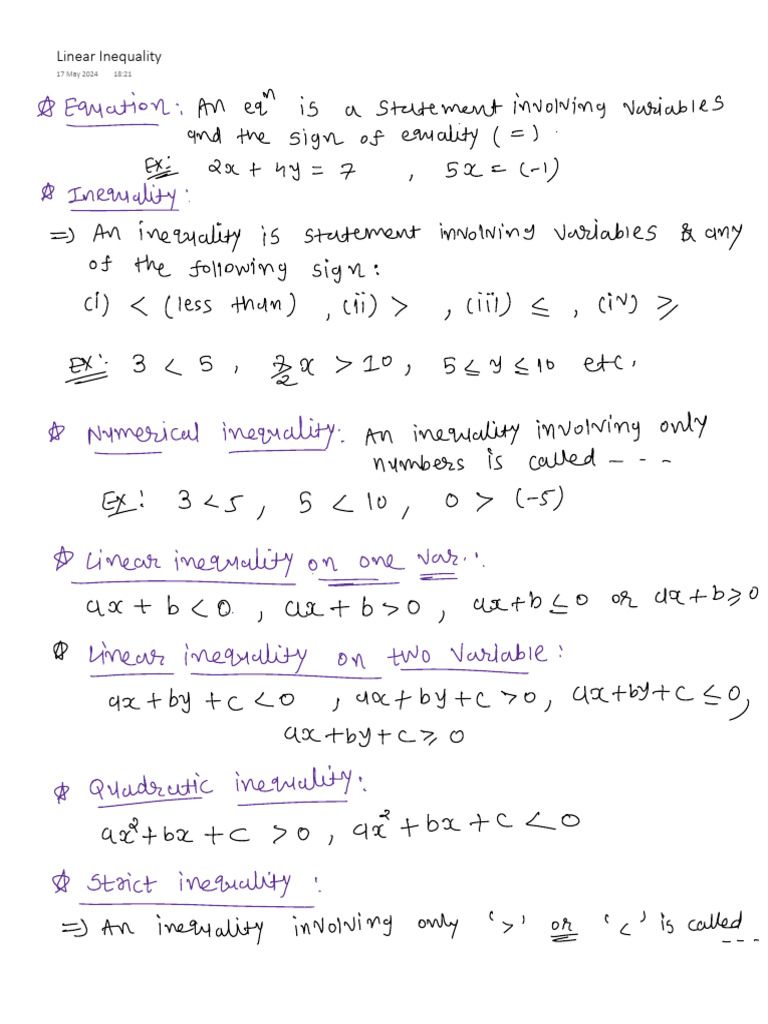 Linear Inequality
17 May 2024 18:21
☆ Equation: An eqⁿ is a statement involving variables
and the sign of equality (=).
Ex: 2x + 4y = 7 , 5x = (-1)
☆ Inequality:
=> An inequality is statement involving variables & any
of the following sign:
(i) < (less than) , (ii) > , (iii) ≤ , (iv) ≥
Ex: 3 < 5 , 7/2 x > 10, 5 ≤ y ≤ 10 etc.
☆ Numerical inequality: An inequality involving only
numbers is called - - -
Ex: 3 < 5 , 5 < 10 , 0 > (-5)
☆ Linear inequality on one var.:
ax + b < 0 , ax + b > 0 , ax + b ≤ 0 or ax + b ≥ 0
☆ Linear inequality on two variable:
ax + by + c < 0 , ax + by + c > 0, ax + by + c ≤ 0,
ax + by + c ≥ 0
☆ Quadratic inequality:
ax² + bx + c > 0 , ax² + bx + c < 0
☆ Strict inequality :
=> An inequality involving only '>' or '<' is called - - -